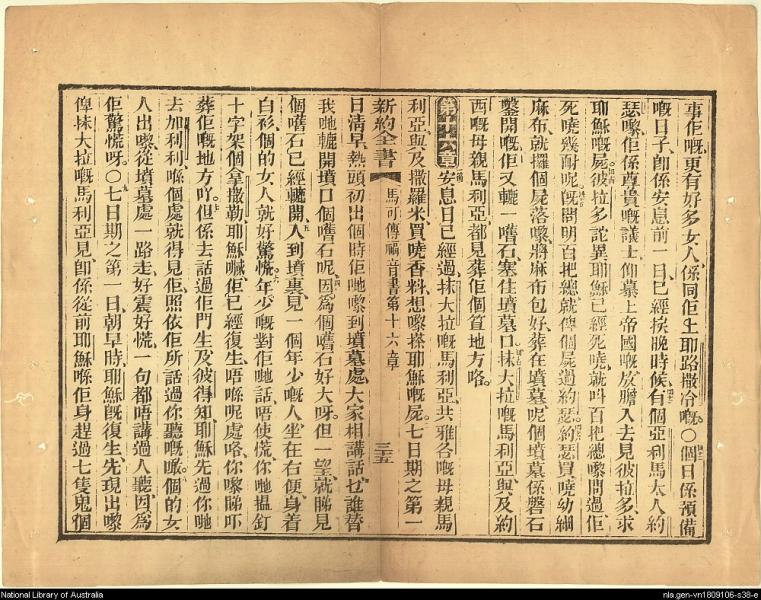 事佢嘅更有好多女人係同佢上耶路撒冷嘅〇個日係預備
嘅日子即係安息前一日已經挨晚時候有個亞利馬太人約
瑟嚟佢係尊貴嘅議士仰慕上帝國嘅放膽入去見彼拉多求
耶穌嘅屍彼拉多詫異耶穌已經死曉就叫百把總嚟問過佢
死曉幾耐呢既問明百把總就俾個屍過約瑟約瑟買曉幼細
麻布就攞個屍落嚟將麻布包好葬在墳墓呢個墳墓係磐石
鑿開嘅佢又轆一嚿石塞住墳墓口抹大拉嘅馬利亞與及約
西嘅母親馬利亞都見葬佢個笪地方咯
第十六章安息日已經過抹大拉嘅馬利亞共雅各嘅母親馬
利亞與及撒羅米買曉香料想嚟搽耶穌嘅屍七日期之第一
新約全書 馬可傳福音書第十六章 三十五
日清早熱頭初出個時佢哋嚟到墳墓處大家相講話乜誰替
我哋轆開墳口個嚿石呢因為個嚿石好大呀但一望就睇見
個嚿石已經轆開入到墳裏見一個年少嘅人坐在右便身着
白衫個的女人就好驚慌年少嘅對佢哋話唔使慌你哋搵釘
十字架個拿撒勒耶穌囁佢已經復生唔喺呢處咯你嚟睇吓
葬佢嘅地方吖但係去話過佢門生及彼得知耶穌先過你哋
去加利利喺個處就得見佢照依佢所話過你聽嘅嚹個的女
人出嚟從墳墓處一路走好震好慌一句都唔講過人聽因為
佢驚慌呀〇七日期之第一日朝早時耶穌既復生先現出嚟
俾抹大拉嘅馬利亞見即係從前耶穌喺佢身趕過七隻鬼個
National Library of Australia
nla.gen-vn1809106-s38-e